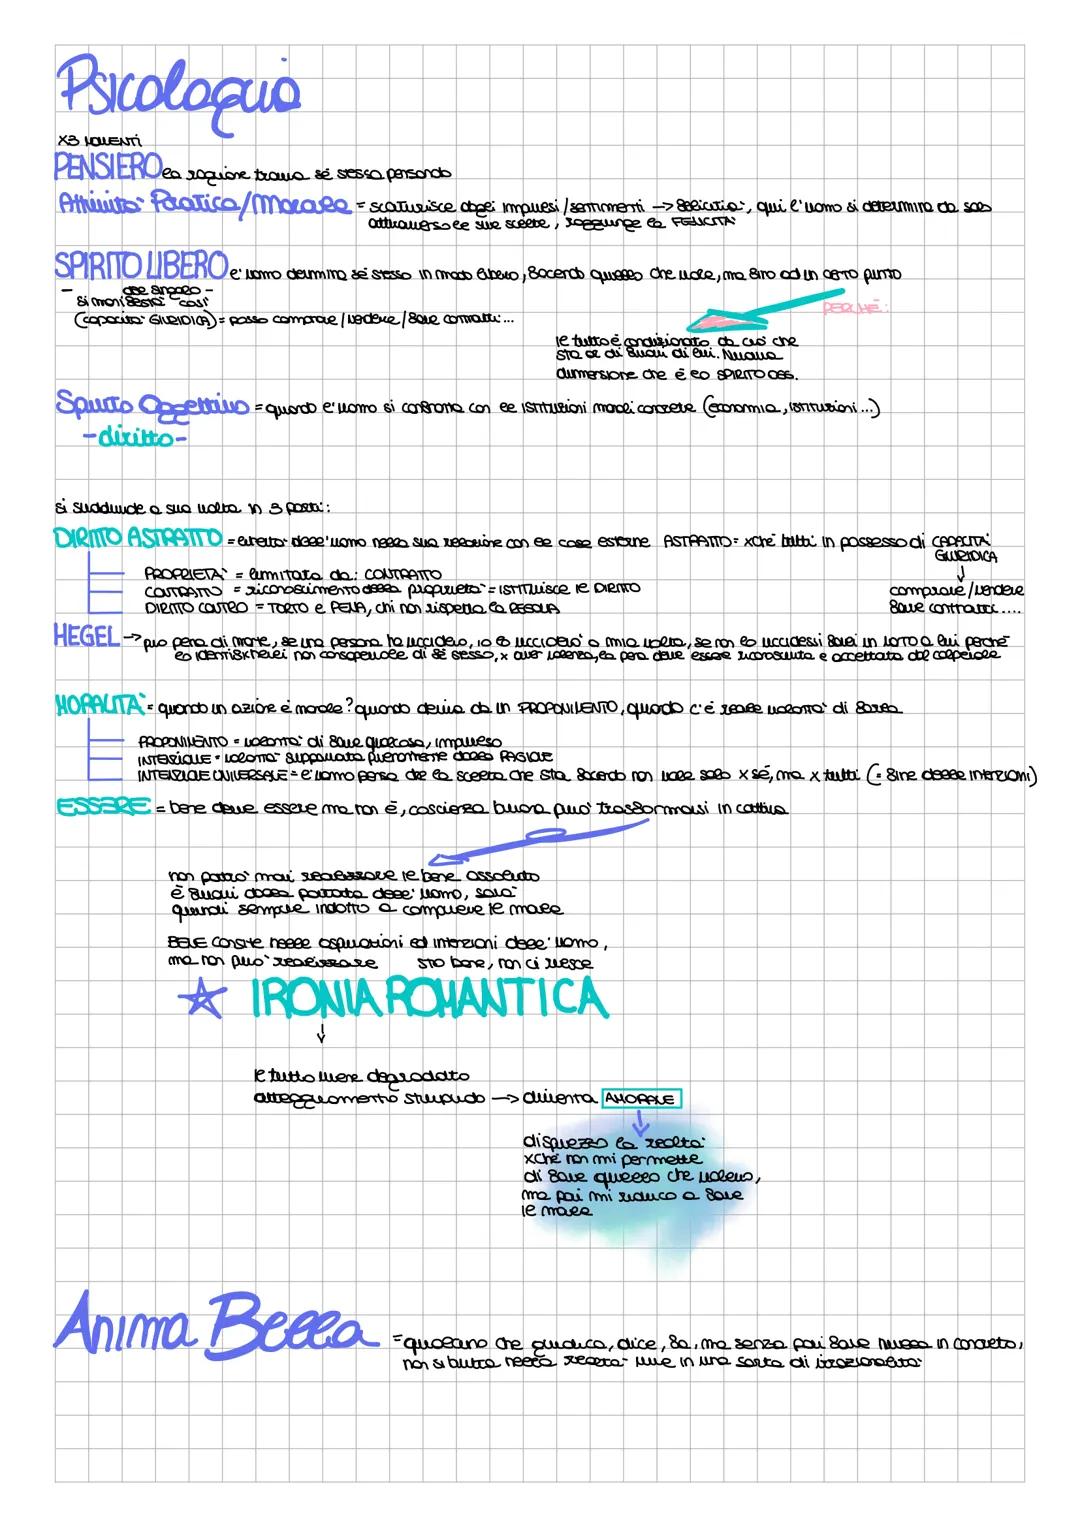 Psicologia
x3 MOMENTI
PENSIERO la ragione trova sé stessa pensando
Attività Pratica/Morale = scaturisce dagli impulsi/sentimenti → felicità, qui l'uomo si determina da solo
attraverso le sue scelte, raggiunge la FELICITÀ
SPIRITO LIBERO l'uomo determina sé stesso in modo libero, facendo quello che vuole, ma fino ad un certo punto
- del singolo -
si manifesta così
(capacità GIURIDICA) = posso comprare/vendere/fare contratti...
PERCHÉ:
il tutto è condizionato da ciò che
sta al di fuori di lui. Nuova
dimensione che è lo SPIRITO OGG.
Spirito Oggettivo = quando l'uomo si confronta con le istituzioni morali concrete (economia, istituzioni...)
- diritto -
si suddivide a sua volta in 3 parti:
DIRITTO ASTRATTO = diritto dell'uomo nella sua relazione con le cose esterne ASTRATTO = xché tutti in possesso di CAPACITÀ
GIURIDICA
↓
PROPRIETÀ = limitata da: CONTRATTO
CONTRATTO = riconoscimento della proprietà = ISTITUISCE IL DIRITTO
comprare/vendere
DIRITTO CONTRO = TORTO e PENA, chi non rispetta la REGOLA
fare contratti....
HEGEL → pro pena di morte, se una persona ha ucciso, io lo ucciderò a mia volta, se non lo uccidessi farei un torto a lui perché
lo identificherei non consapevole di sé stesso, x aver valenza, la pena deve essere riconosciuta e accettata dal colpevole
MORALITÀ = quando un azione è morale? quando deriva da un PROPONIMENTO, quando c'è reale volontà di farla
PROPONIMENTO = volontà di fare qualcosa, impulso
INTENZIONE = volontà supportata pienamente dalla RAGIONE
INTENZIONE UNIVERSALE = l'uomo pensa che la scelta che sta facendo non vale solo x sé, ma x tutti (= fine delle intenzioni)
ESSERE = bene deve essere ma non è, coscienza buona può trasformarsi in cattiva
non potrò mai realizzare il bene assoluto
è fuori dalla portata dell'uomo, sarà
quindi sempre indotto a compiere il male
BENE consite nelle aspirazioni ed intenzioni dell'uomo,
ma non può realizzare sto bene, non ci riesce
☆ IRONIA ROMANTICA
↓
il tutto viene degradato
atteggiamento stupido → diventa AMORALE
↓
disprezzo la realtà
xché non mi permette
di fare quello che volevo,
ma poi mi riduco a fare
il male
Anima Bella = qualcuno che giudica, dice, fa, ma senza poi fare nulla in concreto,
non si butta nella realtà vive in una sorta di irrazionalità